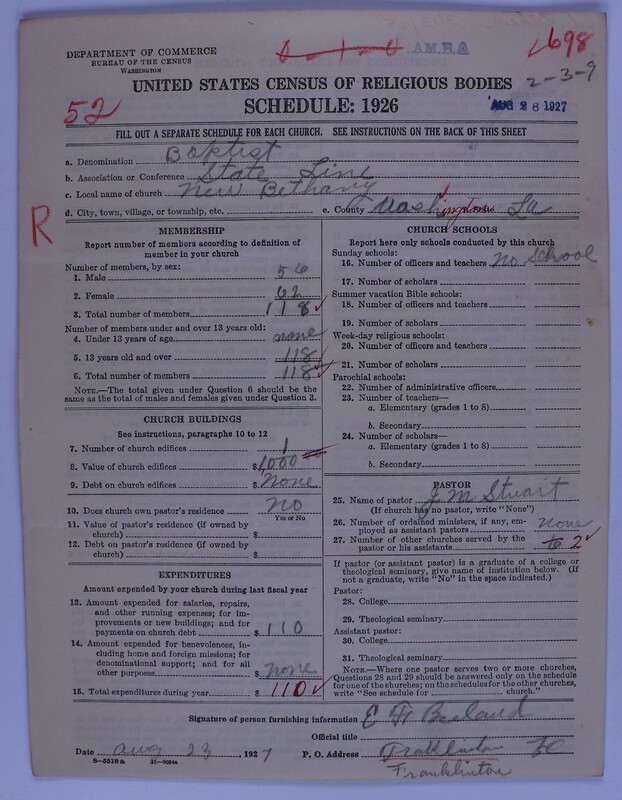 DEPARTMENT OF COMMERCE
BUREAU OF THE CENSUS
WASHINGTON
A.M.B.A
1698
2-3-9
UNITED STATES CENSUS OF RELIGIOUS BODIES
SCHEDULE: 1926
52
AUG 26 1927
FILL OUT A SEPARATE SCHEDULE FOR EACH CHURCH. SEE INSTRUCTIONS ON THE BACK OF THIS SHEET
a. Denomination Baptist
b. Association or Conference State Line
c. Local name of church New Bethany
d. City, town, village, or township, etc. e. County Washington La
R
MEMBERSHIP
Report number of members according to definition of
member in your church
Number of members, by sex:
1. Male 56
2. Female 62
3. Total number of members 118
Number of members under and over 13 years old:
4. Under 13 years of age none
5. 13 years old and over 118
6. Total number of members 118
NOTE.—The total given under Question 6 should be the
same as the total of males and females given under Question 3.
CHURCH BUILDINGS
See instructions, paragraphs 10 to 12
7. Number of church edifices 1
8. Value of church edifices $1000
9. Debt on church edifices $None
10. Does church own pastor's residence No
Yes or No
11. Value of pastor's residence (if owned by
church) $
12. Debt on pastor's residence (if owned by
church) $
EXPENDITURES
Amount expended by your church during last fiscal year
13. Amount expended for salaries, repairs,
and other running expenses; for im-
provements or new buildings; and for
payments on church debt $110
14. Amount expended for benevolences, in-
cluding home and foreign missions; for
denominational support; and for all
other purposes $none
15. Total expenditures during year $110
CHURCH SCHOOLS
Report here only schools conducted by this church
Sunday schools:
16. Number of officers and teachers No School
17. Number of scholars
Summer vacation Bible schools:
18. Number of officers and teachers
19. Number of scholars
Week-day religious schools:
20. Number of officers and teachers
21. Number of scholars
Parochial schools:
22. Number of administrative officers
23. Number of teachers—
a. Elementary (grades 1 to 8)
b. Secondary
24. Number of scholars—
a. Elementary (grades 1 to 8)
b. Secondary
PASTOR
25. Name of pastor J M Stuart
(If church has no pastor, write "None")
26. Number of ordained ministers, if any, em-
ployed as assistant pastors none
27. Number of other churches served by the
pastor or his assistants to 2
If pastor (or assistant pastor) is a graduate of a college or
theological seminary, give name of institution below. (If
not a graduate, write "No" in the space indicated.)
Pastor:
28. College
29. Theological seminary
Assistant pastor:
30. College
31. Theological seminary
NOTE.—Where one pastor serves two or more churches,
Questions 28 and 29 should be answered only on the schedule
for one of the churches; on the schedules for the other churches,
write "See schedule for church."
Signature of person furnishing information
Official title
Date Aug 23, 1927 P. O. Address La
Franklinton